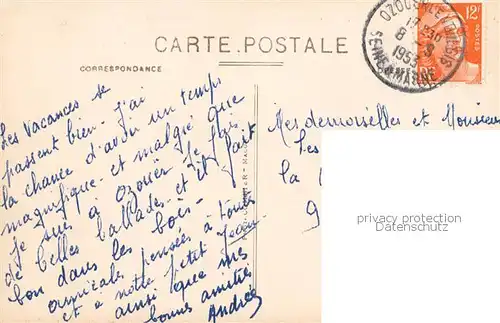 CARTE POSTALE
CORRESPONDANCE
OZOUER-LE-VOULGIS
8-8
1953
SEINE-ET-MARNE
12F
POSTES
Les Vacances se
passent bien - j'ai
la chance d'avoir un temps
magnifique - et malgré que
Je suis à Ozouer Je fais
de belles ballades - et il fait
bon dans les bois -
amicales pensées à tous
et à notre petit Jean
ainsi que mes
bonnes amitiés
Andrée
Mesdemoiselles et Monsieur
Les
la
9
privacy protection
DARABANTH.COM